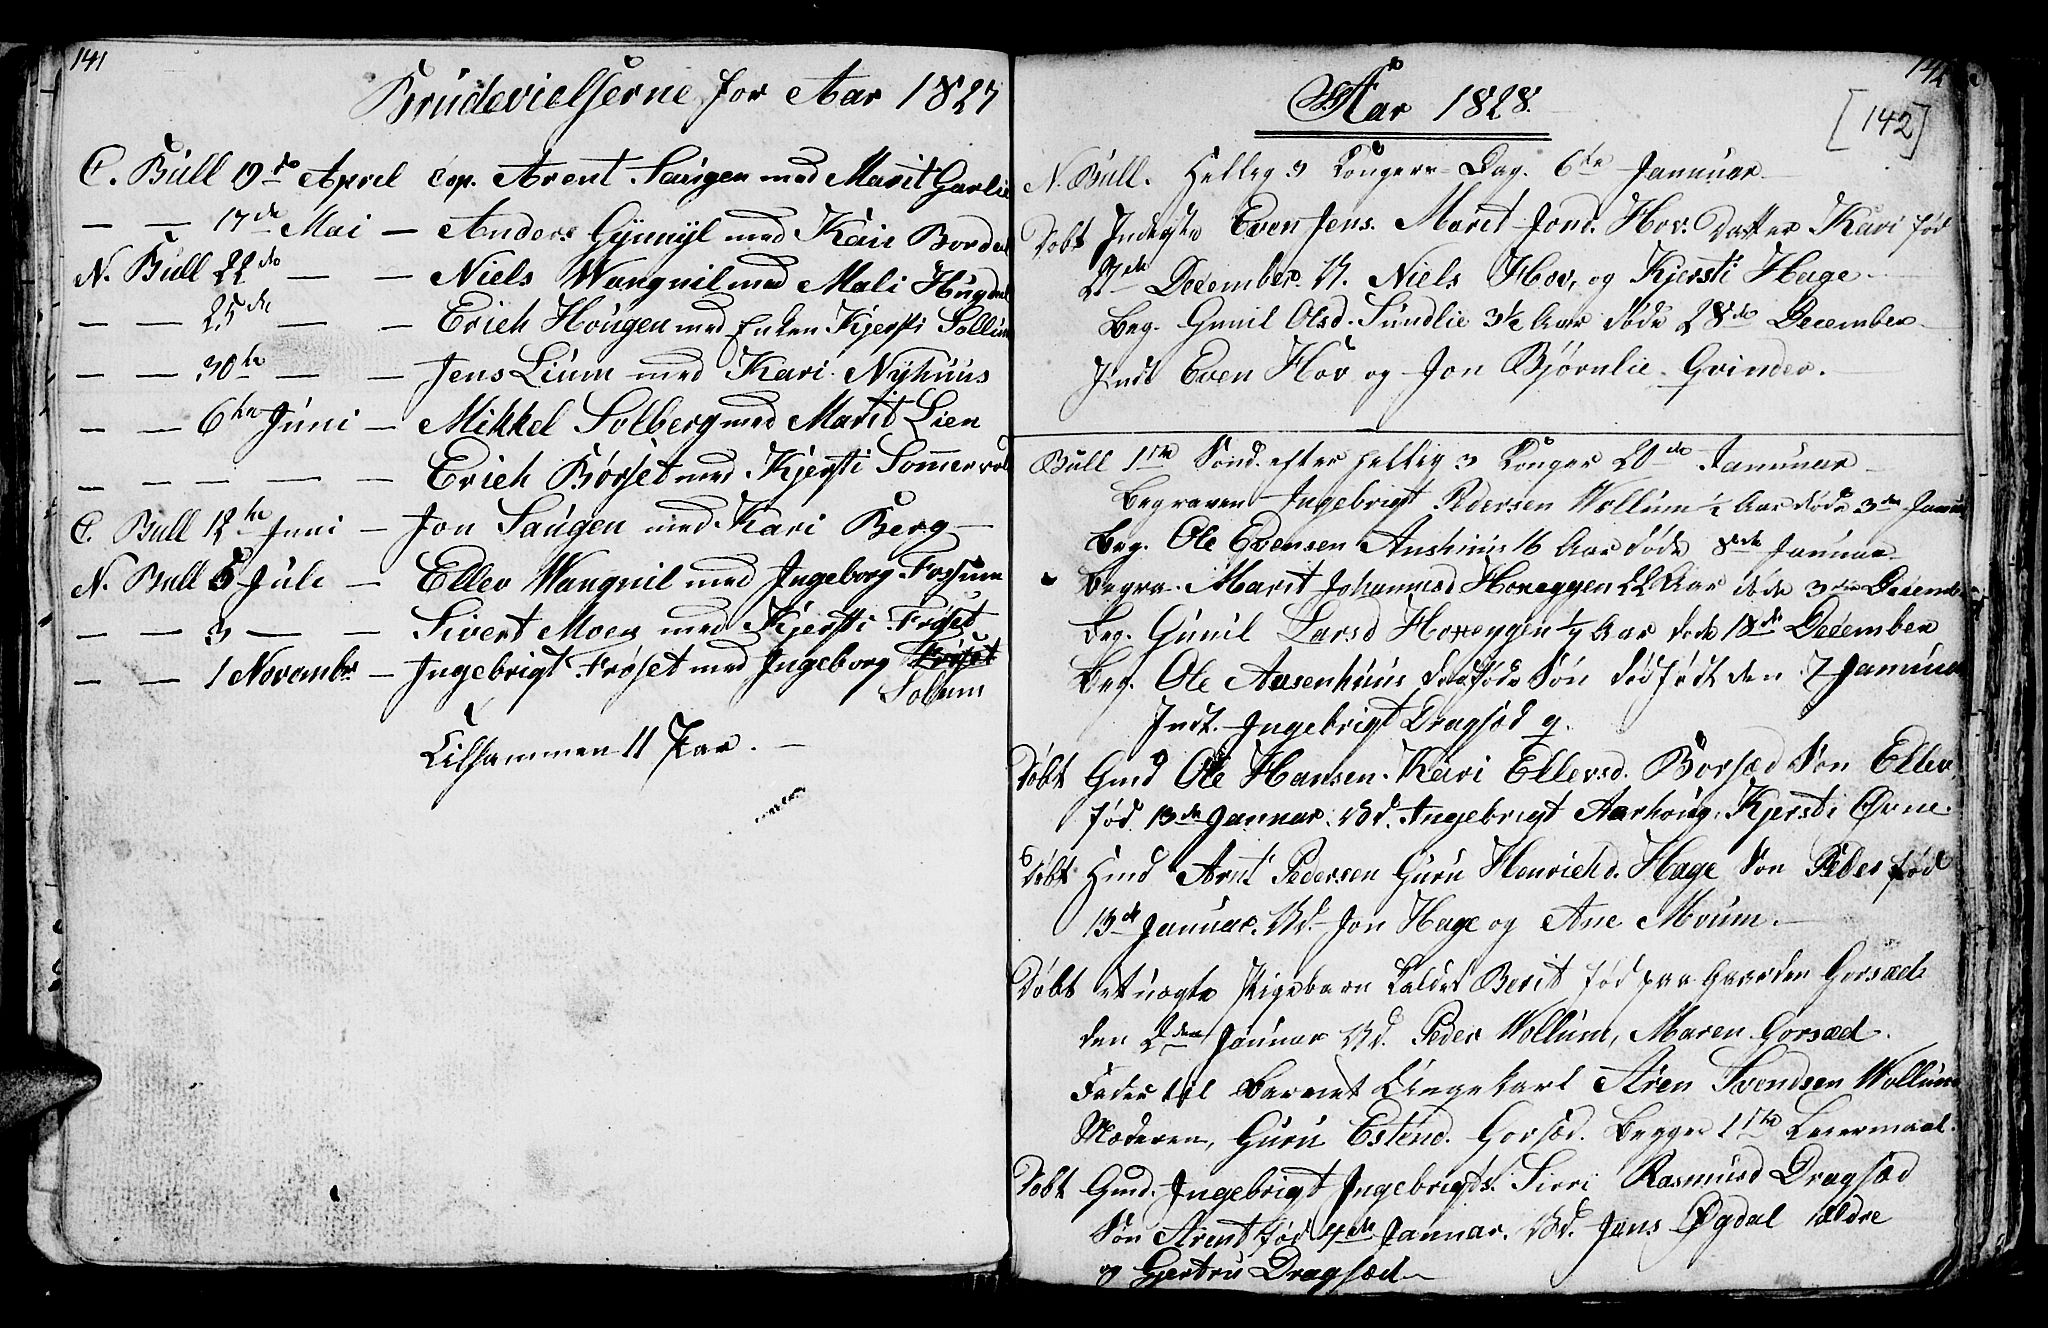 141
Brudevielserne for Aar 1827
C. Bull 19de Aprel Cop. Arent Saugen med Marit Garlie
— — 17de Mai — Anders Gynnyl med Kari Bordal
N. Bull 22de — — Niels Wangnil med Mali Hugdal
— — 25de — — Erich Hougen med Enken Kjersti Sollum
— — 30te — — Jens Lium med Kari Nyhuus
— — 6te Juni — Mikkel Solberg med Marit Lien
— — — — — Erich Børset med Kjersti Sommervol
C. Bull 12te Juni — Jon Saugen med Kari Berg —
N. Bull 3 Juli — Ellev Wangnil med Ingeborg Fossum
— — 3 — — Sivert Moen med Kjersti Frøset
— — 1 Novembr — Ingebrigt Frøset med Ingeborg Frøset
Solem
Tilsammen 11 Par. —
142
Aar 1828.
[142]
N. Bull. Hellig 3 Kongers Dag. 6te Januuar
Døbt Inderste Even Jens. Marit Jond. Hov. Datter Kari fød
27de December. V. Niels Hov, og Kjersti Hage
Beg. Gunil Olsd. Sundlie 3½ Aar døde 28de December.
Indt Even Hov og Jon Bjørnlie Qvinder.
Bull 1ste Sønd. efter Hellig 3 Konger 20de Januuar
Begraven Ingebrigt Pedersen Wollum ½ Aar døde 3de Januar
Beg. Ole Evensen Aushuus 16 Aar døde 8de Januar
Begra. Marit Johannesd Hoxeggen 22 Aar døde 3die December
Beg. Gunil Larsd Hoxeggen ¼ Aar døde 18de December
Beg. Ole Aasenhuus dødfødt Søn dødfødt den 7 Januuar
Indt. Ingebrigt Dragsød q.
Døbt Gmd Ole Hansen. Kari Ellevsd. Borsæd Søn Ellev
fød 13de Januar. Vd. Ingebrigt Aarhoug, Kjersti Øvne.
Døbt Hmd Arnt Pedersen Guru Henrichd. Hage Søn Peder fød
13de Januar. Vd. Jon Hage og Ane Moum. —
Døbt et uægte Pigebarn kaldet Berit fød paa Gaarden Gorsæd
den 2den Januar Vd. Peder Wollum, Maren Gorsæd.
Fader til Barnet Ungekarl Aren Svendsen Wollum
Moderen, Guru Estend. Gorsæd. begges 1ste Leiermaal.
Døbt Gmd. Ingebrigt Ingebrigts. Sirri Rasmusd Dragsæd
Søn Arent fød 4de Januar. Vd. Jens Øgdal ældre
og Gjertru Dragsæd